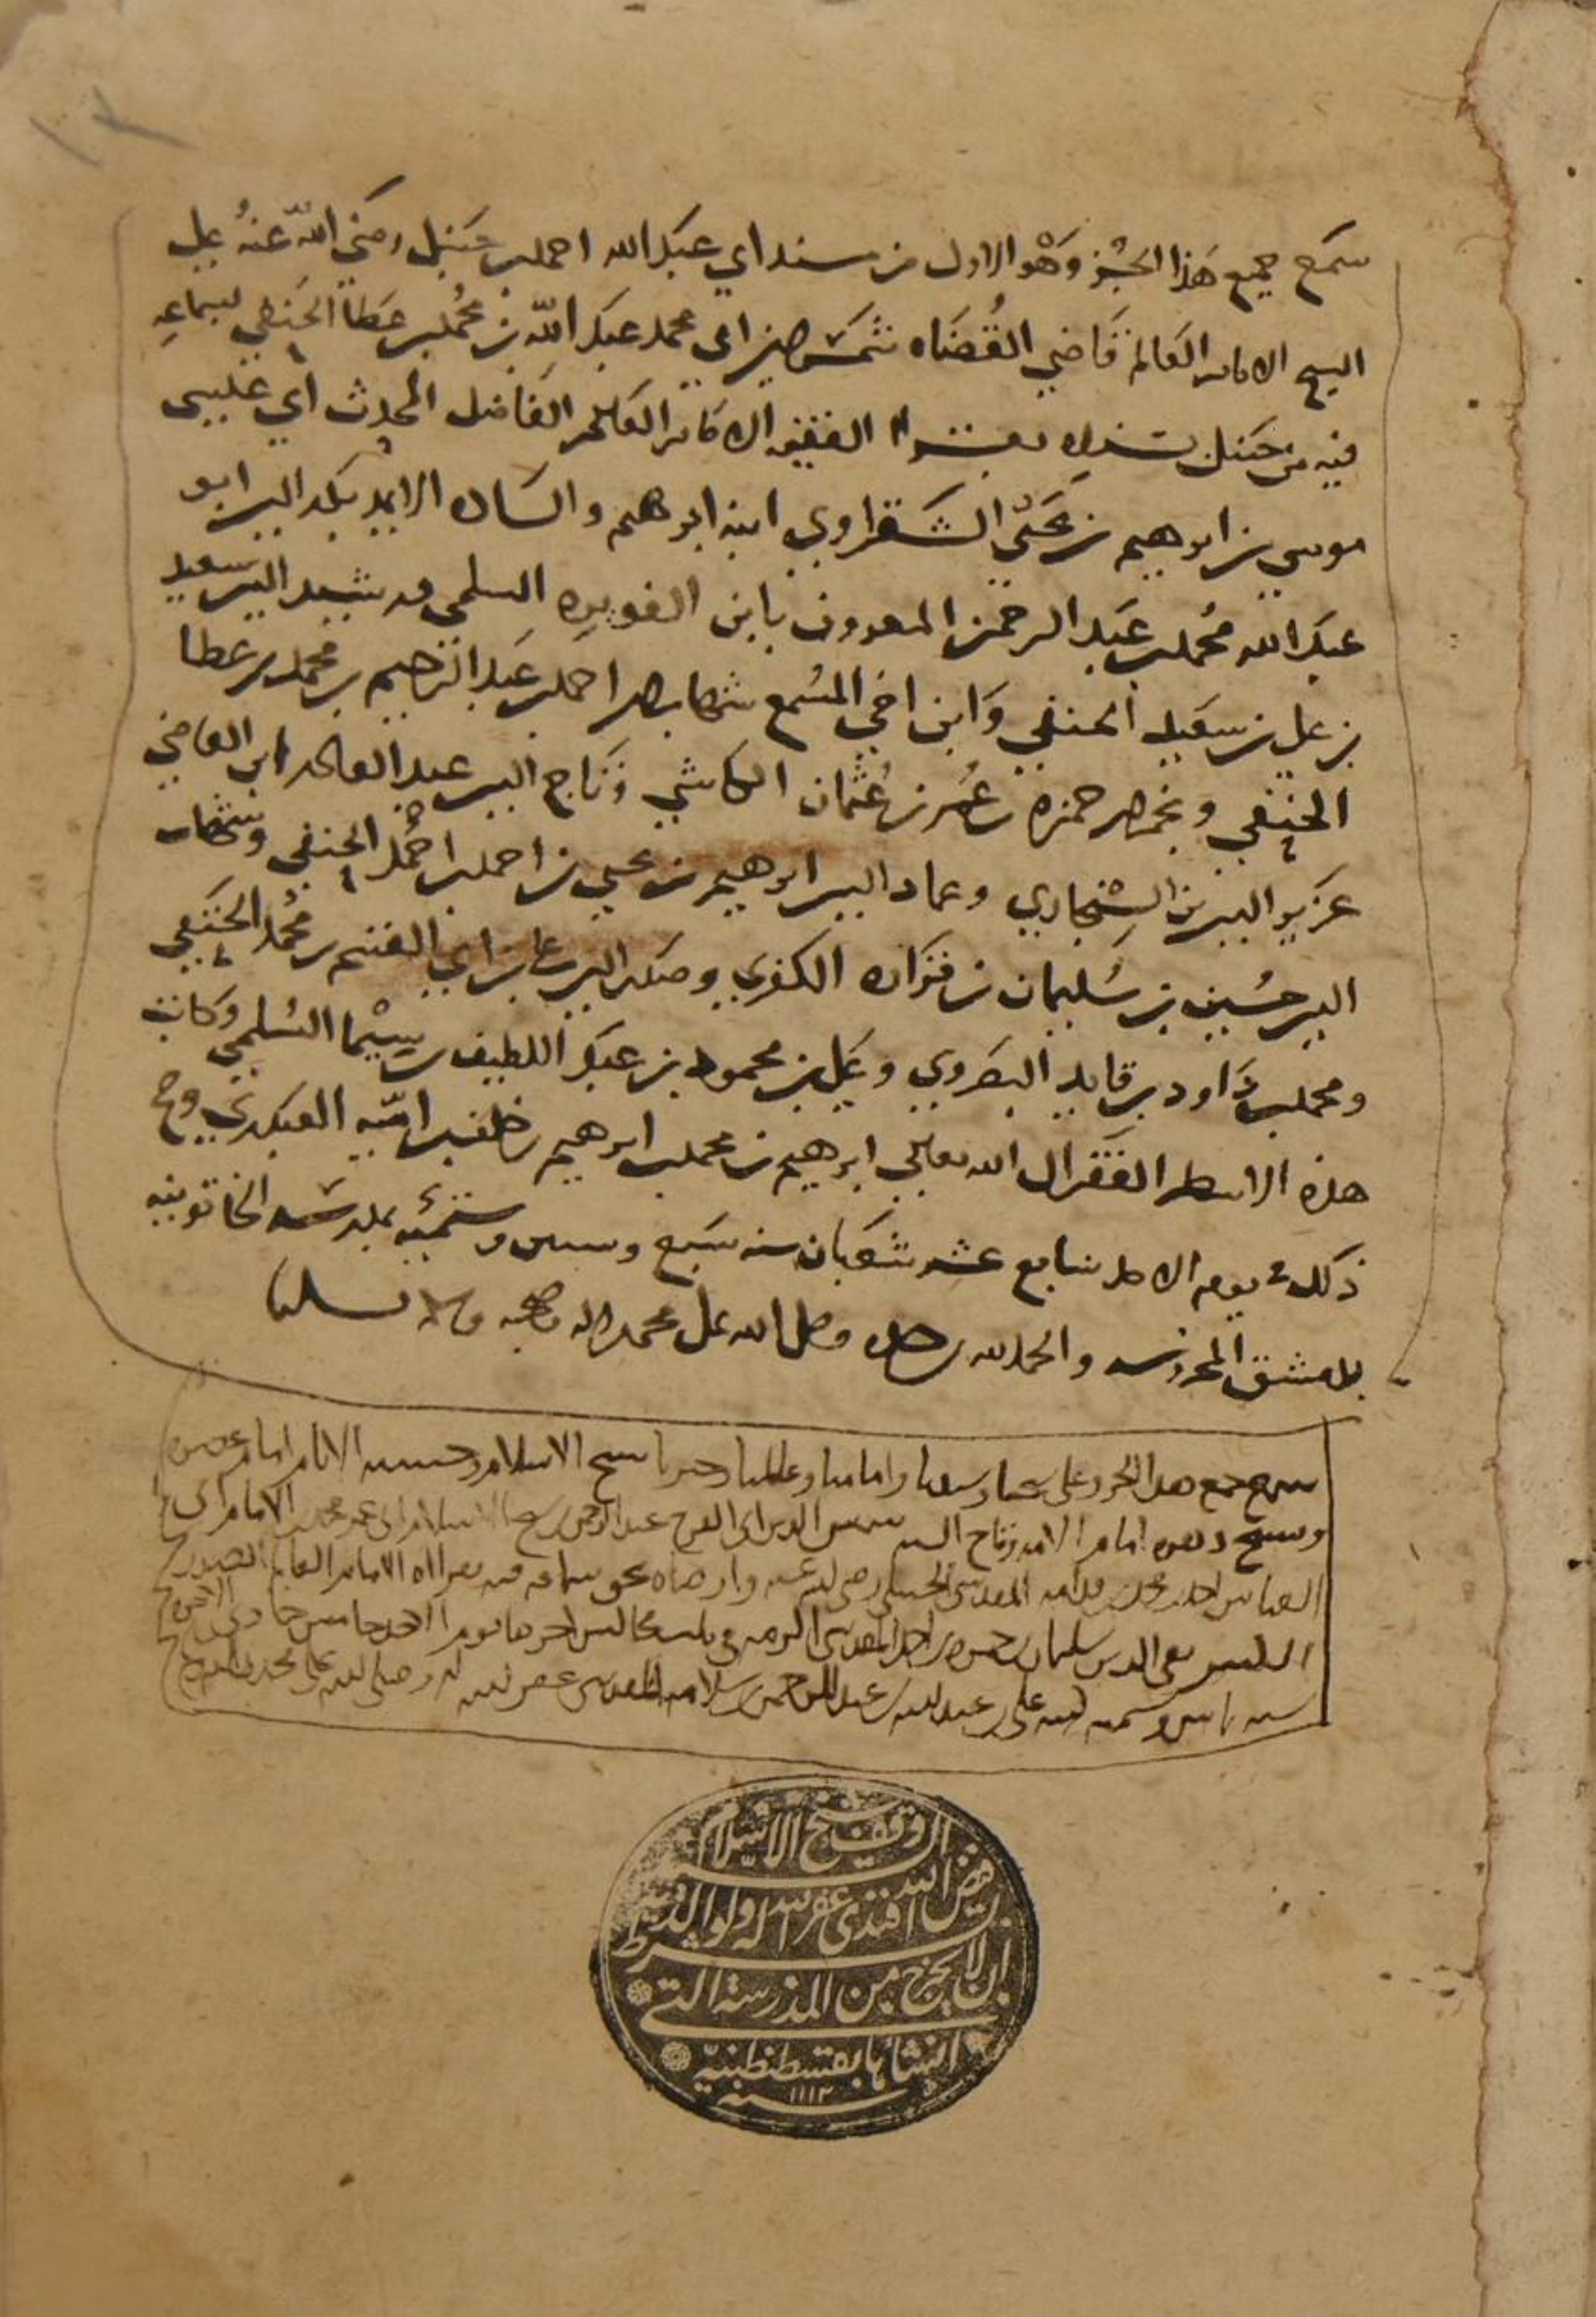 سمع جميع هذا الجزء وهو الاول من مسند ابي عبد الله احمد بن حنبل رضي الله عنه على
الشيخ الامام العالم قاضي القضاه شمس الدين ابي محمد عبد الله بن محمد بن عطا الحنفي بسماعه
فيه من حنبل بسنده بقراءة الفقيه الامام العالم الفاضل المحدث ابي
موسى بن ابراهيم بن يحيى الشقراوي ابنه ابراهيم والساده الايمه بدر الدين ابو
عبد الله محمد بن عبد الرحمن المعروف بابن الفويره السلمي ورشيد الدين سعيد
بن علي بن سعيد الحنفي وابن اخي المسمع شهاب الدين احمد بن عبد الرحيم بن محمد بن عطا
الحنفي ونجم الدين حمزه بن عمر بن عثمان الكاشي وتاج الدين عبد القادر ابن القاضي
عزيز الدين السنجاري وعماد الدين ابراهيم بن يحيى بن احمد بن احمد الحنفي وشهاب
الدين حسين بن سليمان بن فزاره الكفري وصدر الدين علي بن ابي القسم بن محمد الحنفي
ومحمد بن داود بن قايد البصروي وعلي بن محمود بن عبد اللطيف بن سيما السلمي وكاتب
هذه الاسطر الفقير الى الله تعالى ابرهيم بن محمد بن ابرهيم بن ظفر العبدري وصح
ذلك في يوم الاحد سابع عشر شعبان سنه سبع وستين وستمئه بمدرسته الخاتونيه
بدمشق المحروسه والحمد لله وحده وصلى الله على محمد واله وصحبه وسلم تسليما
سمع جميع هذا الجزء على شيخنا وسيدنا وامامنا وعالمنا وحبرنا شيخ الاسلام وحسنة الانام امام عصره
امام الائمه وتاج شمس الدين ابي الفرج عبد الرحمن بن شيخ الاسلام ابي عمر محمد الامام ابي
العباس احمد بن محمد بن قدامه المقدسي الحنبلي رضي الله عنه وارضاه بحق سماعه فيه بقراءة الامام العالم الصدر
تقي الدين سليمان بن حمزه بن احمد المقدسي في ثلث مجالس اخرها يوم الاحد خامس جمادى الاخره
سنه كتبه علي بن عبد الله بن عبد الرحمن بن سلامه المقدسي عفر الله له وصلى الله على محمد واله
الوقف شيخ الاسلام السيد
فيض الله افندي غفر الله له ولوالديه بشرط
ان لا يخرج من المدرسة التي
انشأها بقسطنطينيه
سنه ١١١٣